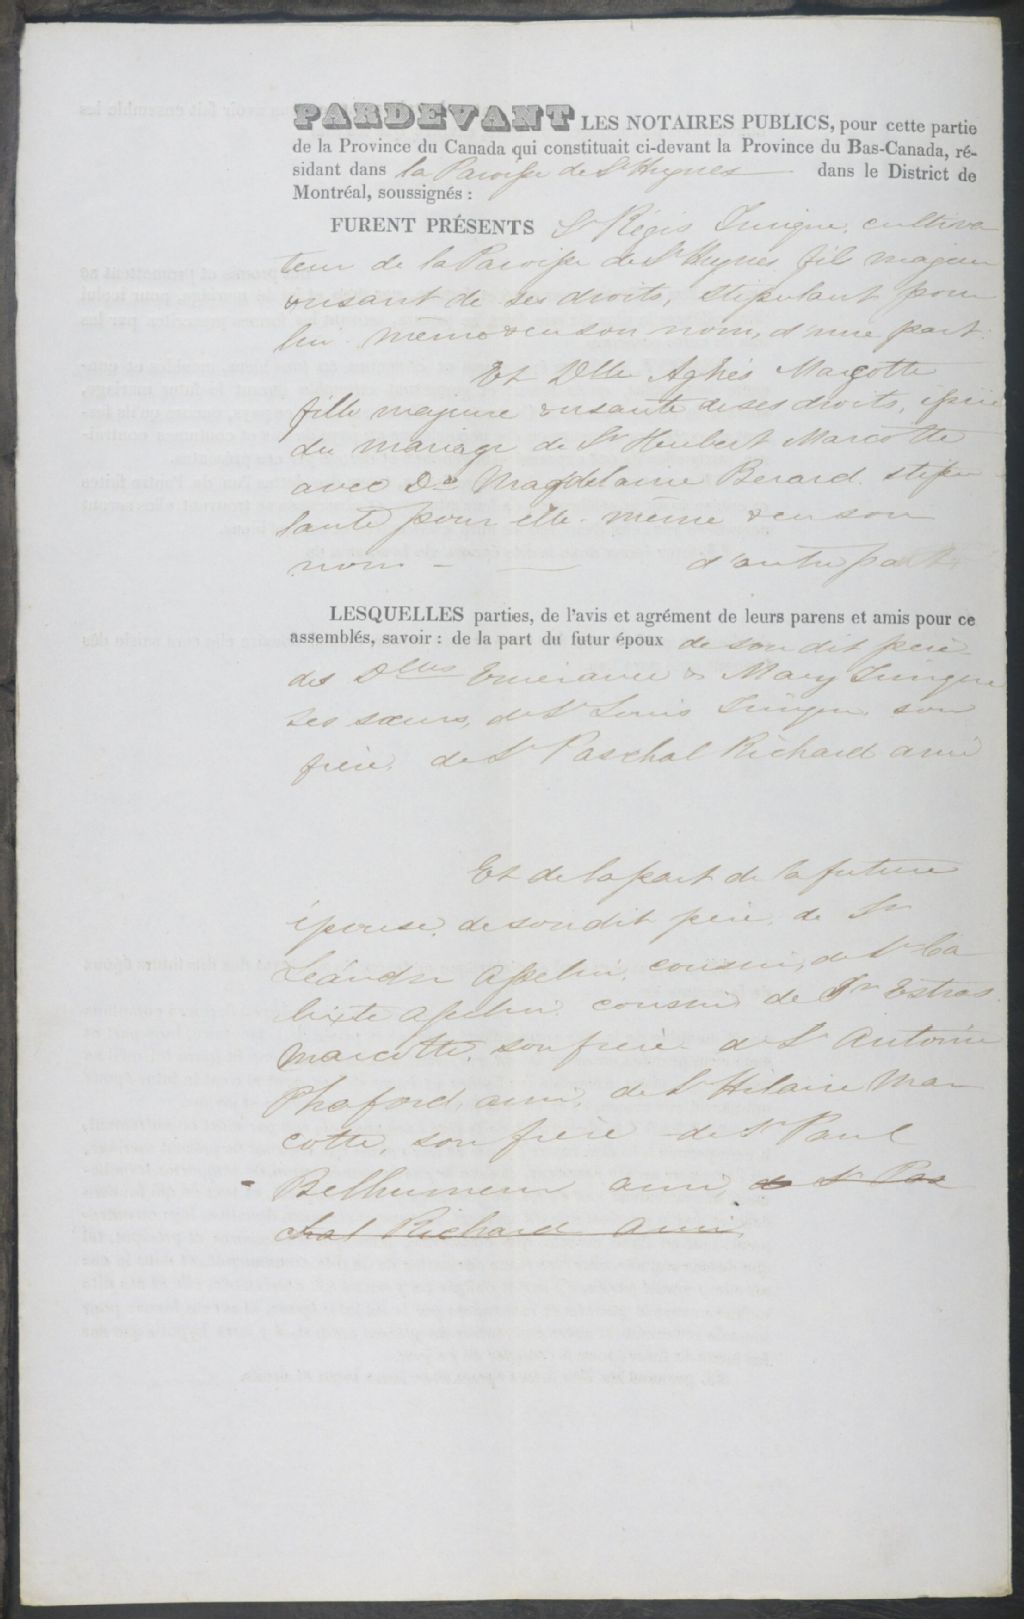 PARDEVANT LES NOTAIRES PUBLICS, pour cette partie
de la Province du Canada qui constituait ci-devant la Province du Bas-Canada, ré-
sidant dans la Paroisse de St Hugues dans le District de
Montréal, soussignés :
FURENT PRÉSENTS Sr Régis cultiva
teur de la Paroisse de St Hugues fils majeur
usant de ses droits, stipulant pour
lui-même & en son nom, d'une part.
Et Dlle Agnès Marcotte
fille majeure usante de ses droits, issue
du mariage de Sr Heubert Marcotte
avec De Magdelaine Berard stipu
lante pour elle-même & en son
nom - d'autre part
LESQUELLES parties, de l'avis et agrément de leurs parens et amis pour ce
assemblés, savoir : de la part du futur époux de son dit père
des Dlles & Mary
ses sœurs, de Sr Louis son
frère, de Sr Paschal Richard ami
Et de la part de la future
épouse, de son dit père, de Sr
Léandre Asselin, cousin, de Sr Ca
lixte Asselin cousin de Sr
Marcotte, son frère de Sr Antoine
ami, de Sr Hilaire Mar
cotte, son frère de Sr Paul
Belhumeur ami, de Sr Pas
chal Richard ami,